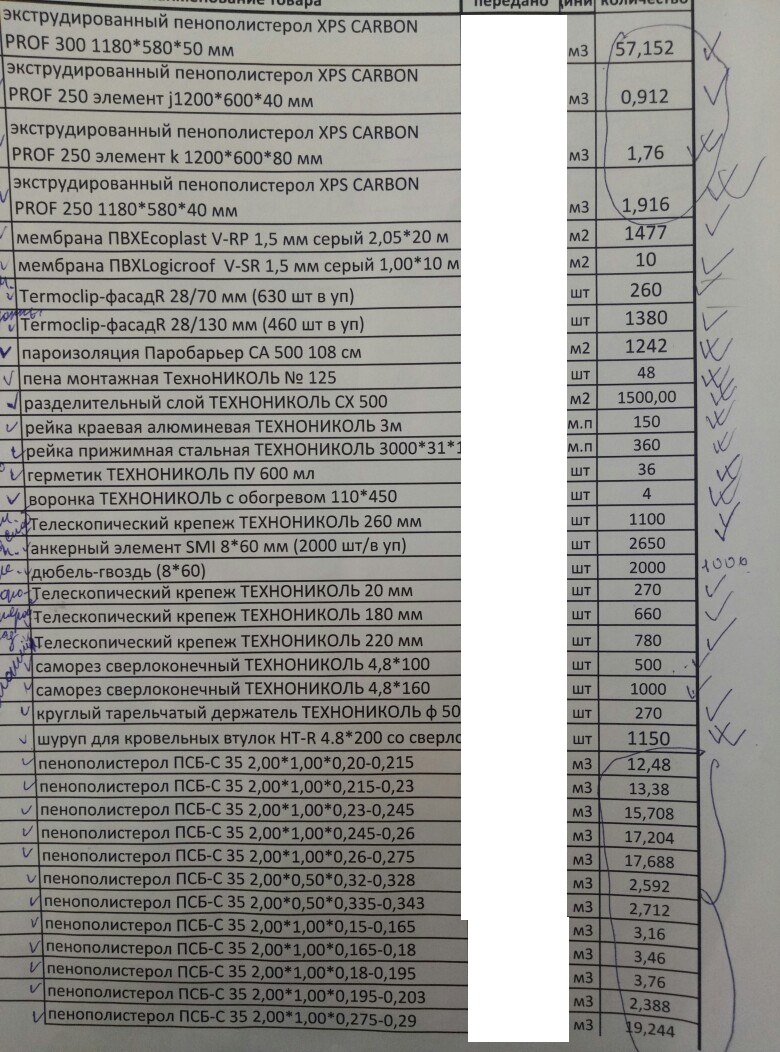 наименование товара передано количество
экструдированный пенополистерол XPS CARBON
PROF 300 1180*580*50 мм м3 57,152
экструдированный пенополистерол XPS CARBON
PROF 250 элемент j1200*600*40 мм м3 0,912
экструдированный пенополистерол XPS CARBON
PROF 250 элемент k 1200*600*80 мм м3 1,76
экструдированный пенополистерол XPS CARBON
PROF 250 1180*580*40 мм м3 1,916
мембрана ПВХEcoplast V-RP 1,5 мм серый 2,05*20 м м2 1477
мембрана ПВХLogicroof V-SR 1,5 мм серый 1,00*10 м м2 10
Termoclip-фасадR 28/70 мм (630 шт в уп) шт 260
Termoclip-фасадR 28/130 мм (460 шт в уп) шт 1380
пароизоляция Паробарьер СА 500 108 см м2 1242
пена монтажная ТехноНИКОЛЬ № 125 шт 48
разделительный слой ТЕХНОНИКОЛЬ СХ 500 м2 1500,00
рейка краевая алюминевая ТЕХНОНИКОЛЬ 3м м.п 150
рейка прижимная стальная ТЕХНОНИКОЛЬ 3000*31*1 м.п 360
герметик ТЕХНОНИКОЛЬ ПУ 600 мл шт 36
воронка ТЕХНОНИКОЛЬ с обогревом 110*450 шт 4
Телескопический крепеж ТЕХНОНИКОЛЬ 260 мм шт 1100
анкерный элемент SMI 8*60 мм (2000 шт/в уп) шт 2650
дюбель-гвоздь (8*60) шт 2000 1000
Телескопический крепеж ТЕХНОНИКОЛЬ 20 мм шт 270
Телескопический крепеж ТЕХНОНИКОЛЬ 180 мм шт 660
Телескопический крепеж ТЕХНОНИКОЛЬ 220 мм шт 780
саморез сверлоконечный ТЕХНОНИКОЛЬ 4,8*100 шт 500
саморез сверлоконечный ТЕХНОНИКОЛЬ 4,8*160 шт 1000
круглый тарельчатый держатель ТЕХНОНИКОЛЬ ф 50 шт 270
шуруп для кровельных втулок HT-R 4.8*200 со сверло шт 1150
пенополистерол ПСБ-С 35 2,00*1,00*0,20-0,215 м3 12,48
пенополистерол ПСБ-С 35 2,00*1,00*0,215-0,23 м3 13,38
пенополистерол ПСБ-С 35 2,00*1,00*0,23-0,245 м3 15,708
пенополистерол ПСБ-С 35 2,00*1,00*0,245-0,26 м3 17,204
пенополистерол ПСБ-С 35 2,00*1,00*0,26-0,275 м3 17,688
пенополистерол ПСБ-С 35 2,00*0,50*0,32-0,328 м3 2,592
пенополистерол ПСБ-С 35 2,00*0,50*0,335-0,343 м3 2,712
пенополистерол ПСБ-С 35 2,00*1,00*0,15-0,165 м3 3,16
пенополистерол ПСБ-С 35 2,00*1,00*0,165-0,18 м3 3,46
пенополистерол ПСБ-С 35 2,00*1,00*0,18-0,195 м3 3,76
пенополистерол ПСБ-С 35 2,00*1,00*0,195-0,203 м3 2,388
пенополистерол ПСБ-С 35 2,00*1,00*0,275-0,29 м3 19,244